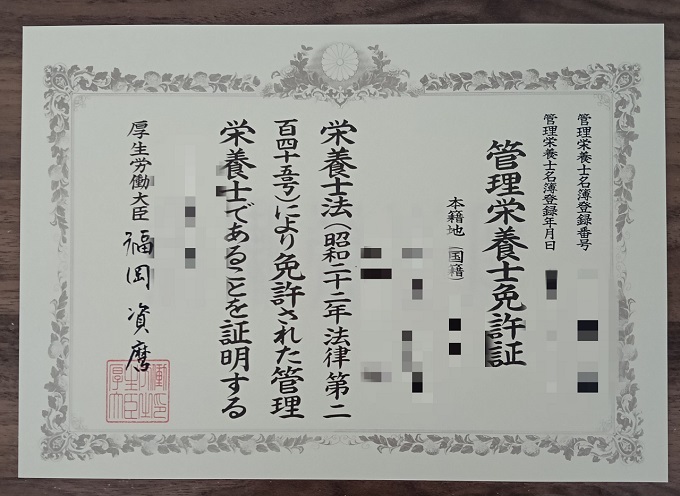 管理栄養士名簿登録番号
管理栄養士名簿登録年月日
管理栄養士免許証
本籍地（国籍）
栄養士法（昭和二十二年法律第二
百四十五号）により免許された管理
栄養士であることを証明する
厚生労働大臣 福岡資麿
厚生労働大臣